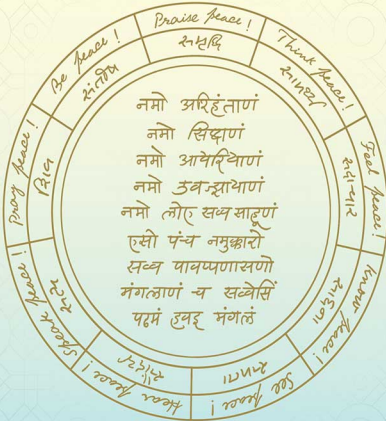 Praise peace!
समृद्धि
Think peace!
सामर्थ्य
Feel peace!
सदाचार
Know peace!
See peace!
समता
Hear peace!
सौंदर्य
Speak peace!
सत्य
Pray peace!
शिव
Be peace!
संतोष
नमो अरिहंताणं
नमो सिद्धाणं
नमो आयेरियाणं
नमो उवज्झायाणं
नमो लोए सव्व साहूणं
एसो पंच नमुक्कारो
सव्व पावप्पणासणो
मंगलाणं च सव्वेसिं
पढमं हवइ मंगलं